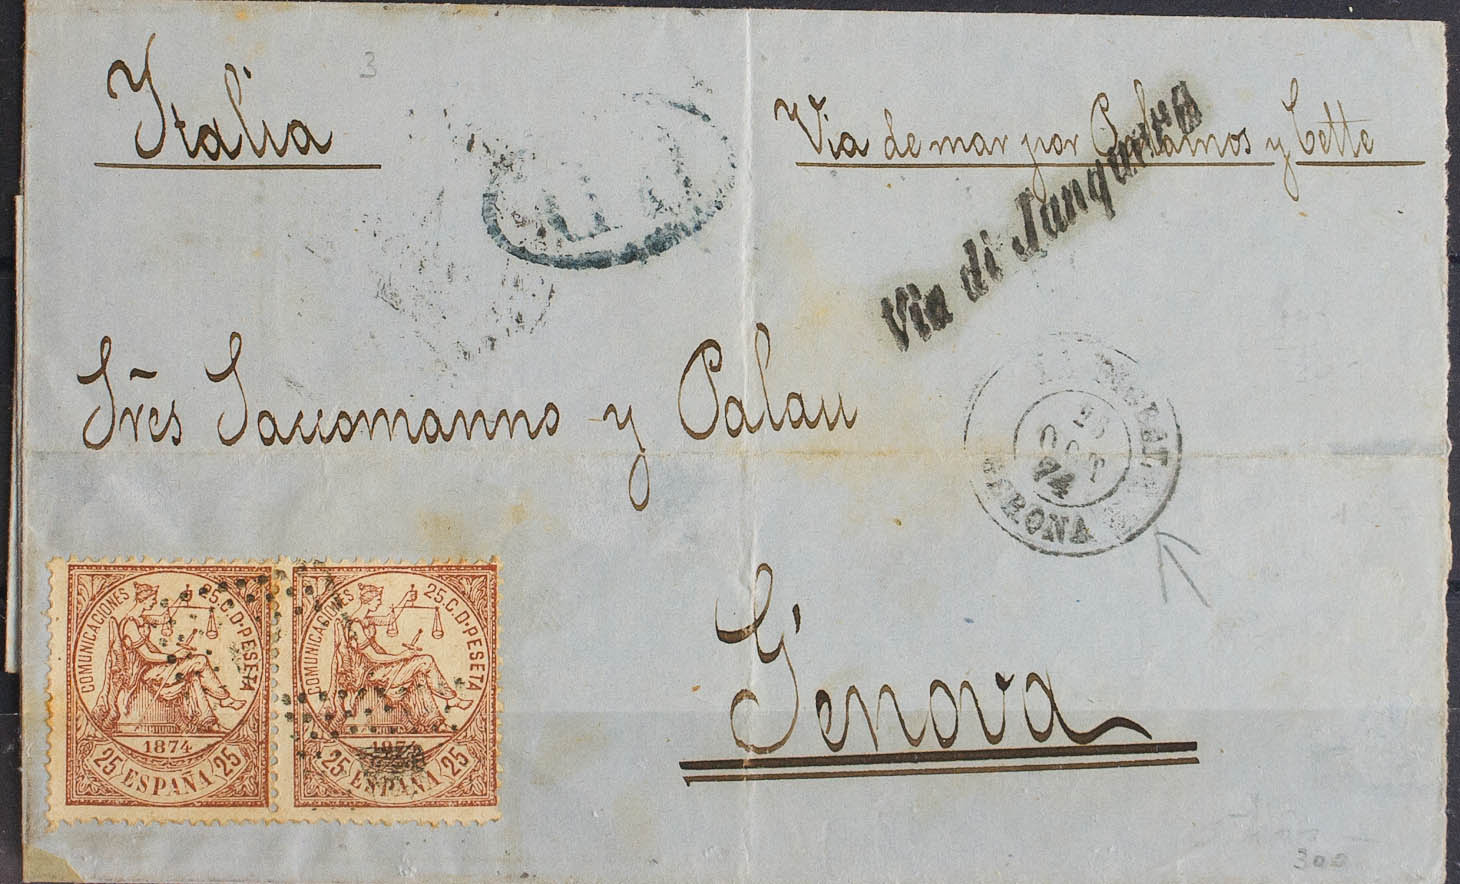 Italia
3
Via de mar por Palamos y Cette
Via di Janquiera
Sres Saccomanno y Palau
OCT
74
GERONA
Genova
COMUNICACIONES 25 C. D. PESETA
1874
25 ESPAÑA 25
COMUNICACIONES 25 C. D. PESETA
1874
25 ESPAÑA 25
300